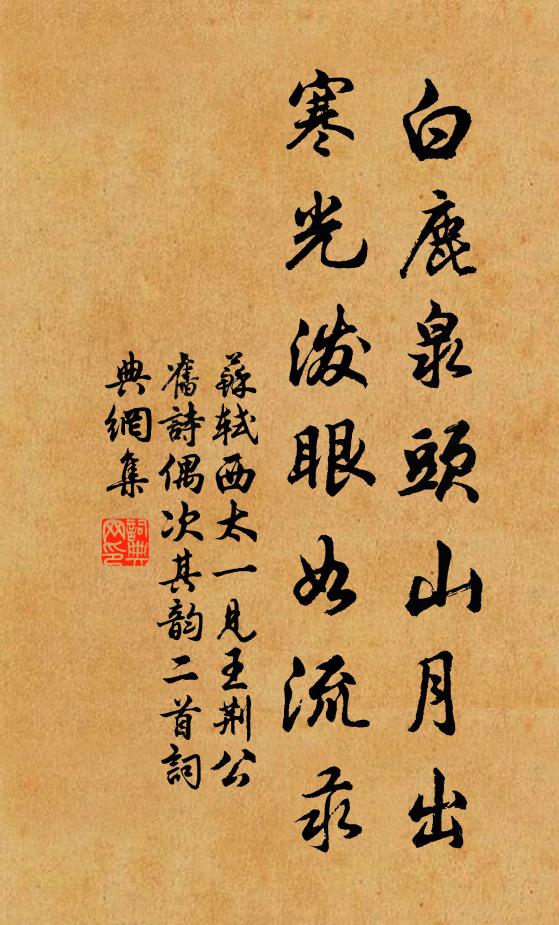 白鹿泉頭山月出
寒光潑眼如流汞
蘇軾西太一見王荆公
舊詩偶次其韵二首詞
典網集
詞典
网印